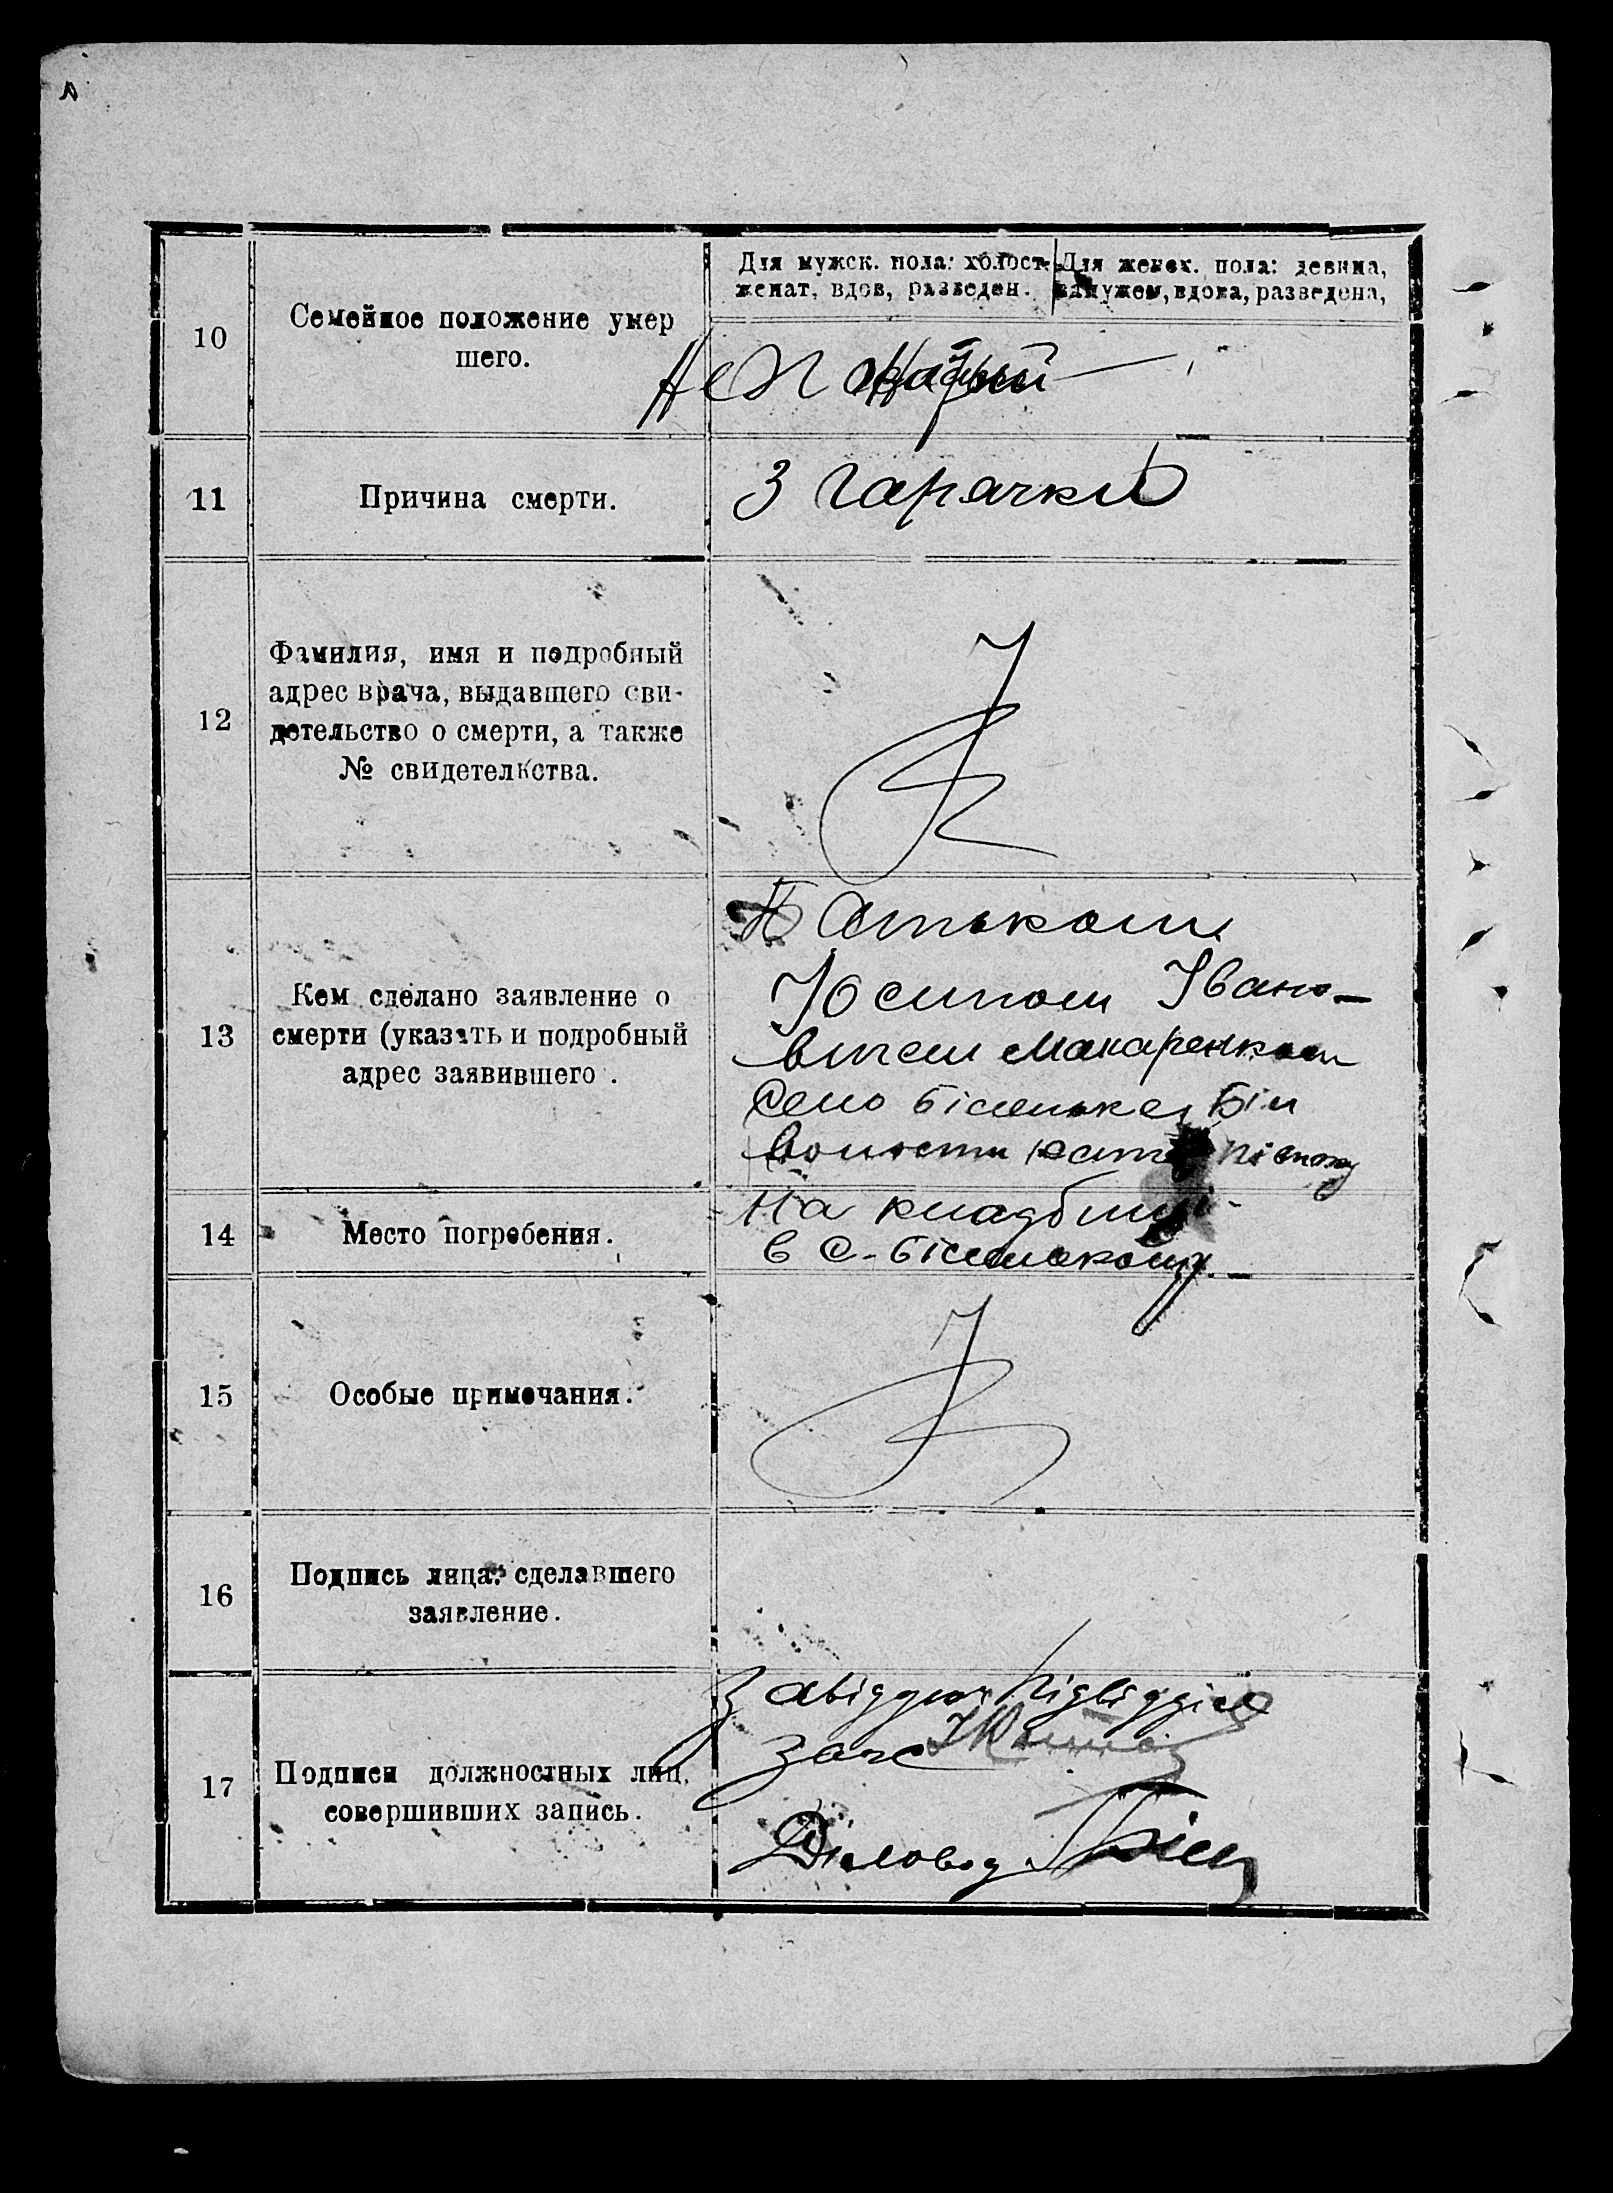 Для мужск. пола: холост. женат, вдов, разведен.
Для женск. пола: девица, замужем, вдова, разведена,
10
Семейное положение умер
шего.
11
Причина смерти.
З гарячки
12
Фамилия, имя и подробный
адрес врача, выдавшего сви-
детельство о смерти, а также
№ свидетелкства.
13
Кем сделано заявление о
смерти (указать и подробный
адрес заявившего .
Батьком
Юсипом Івано-
вичем Макаренком
Село Біленьке Біл
волости
14
Место погребения.
На кладбищі
в с. Біленькому.
15
Особые примечания.
16
Подпись лица: сделавшего
заявление.
17
Подписи должностных лиц,
совершивших запись.
Завідуюч підвідділ
загс
Діловод